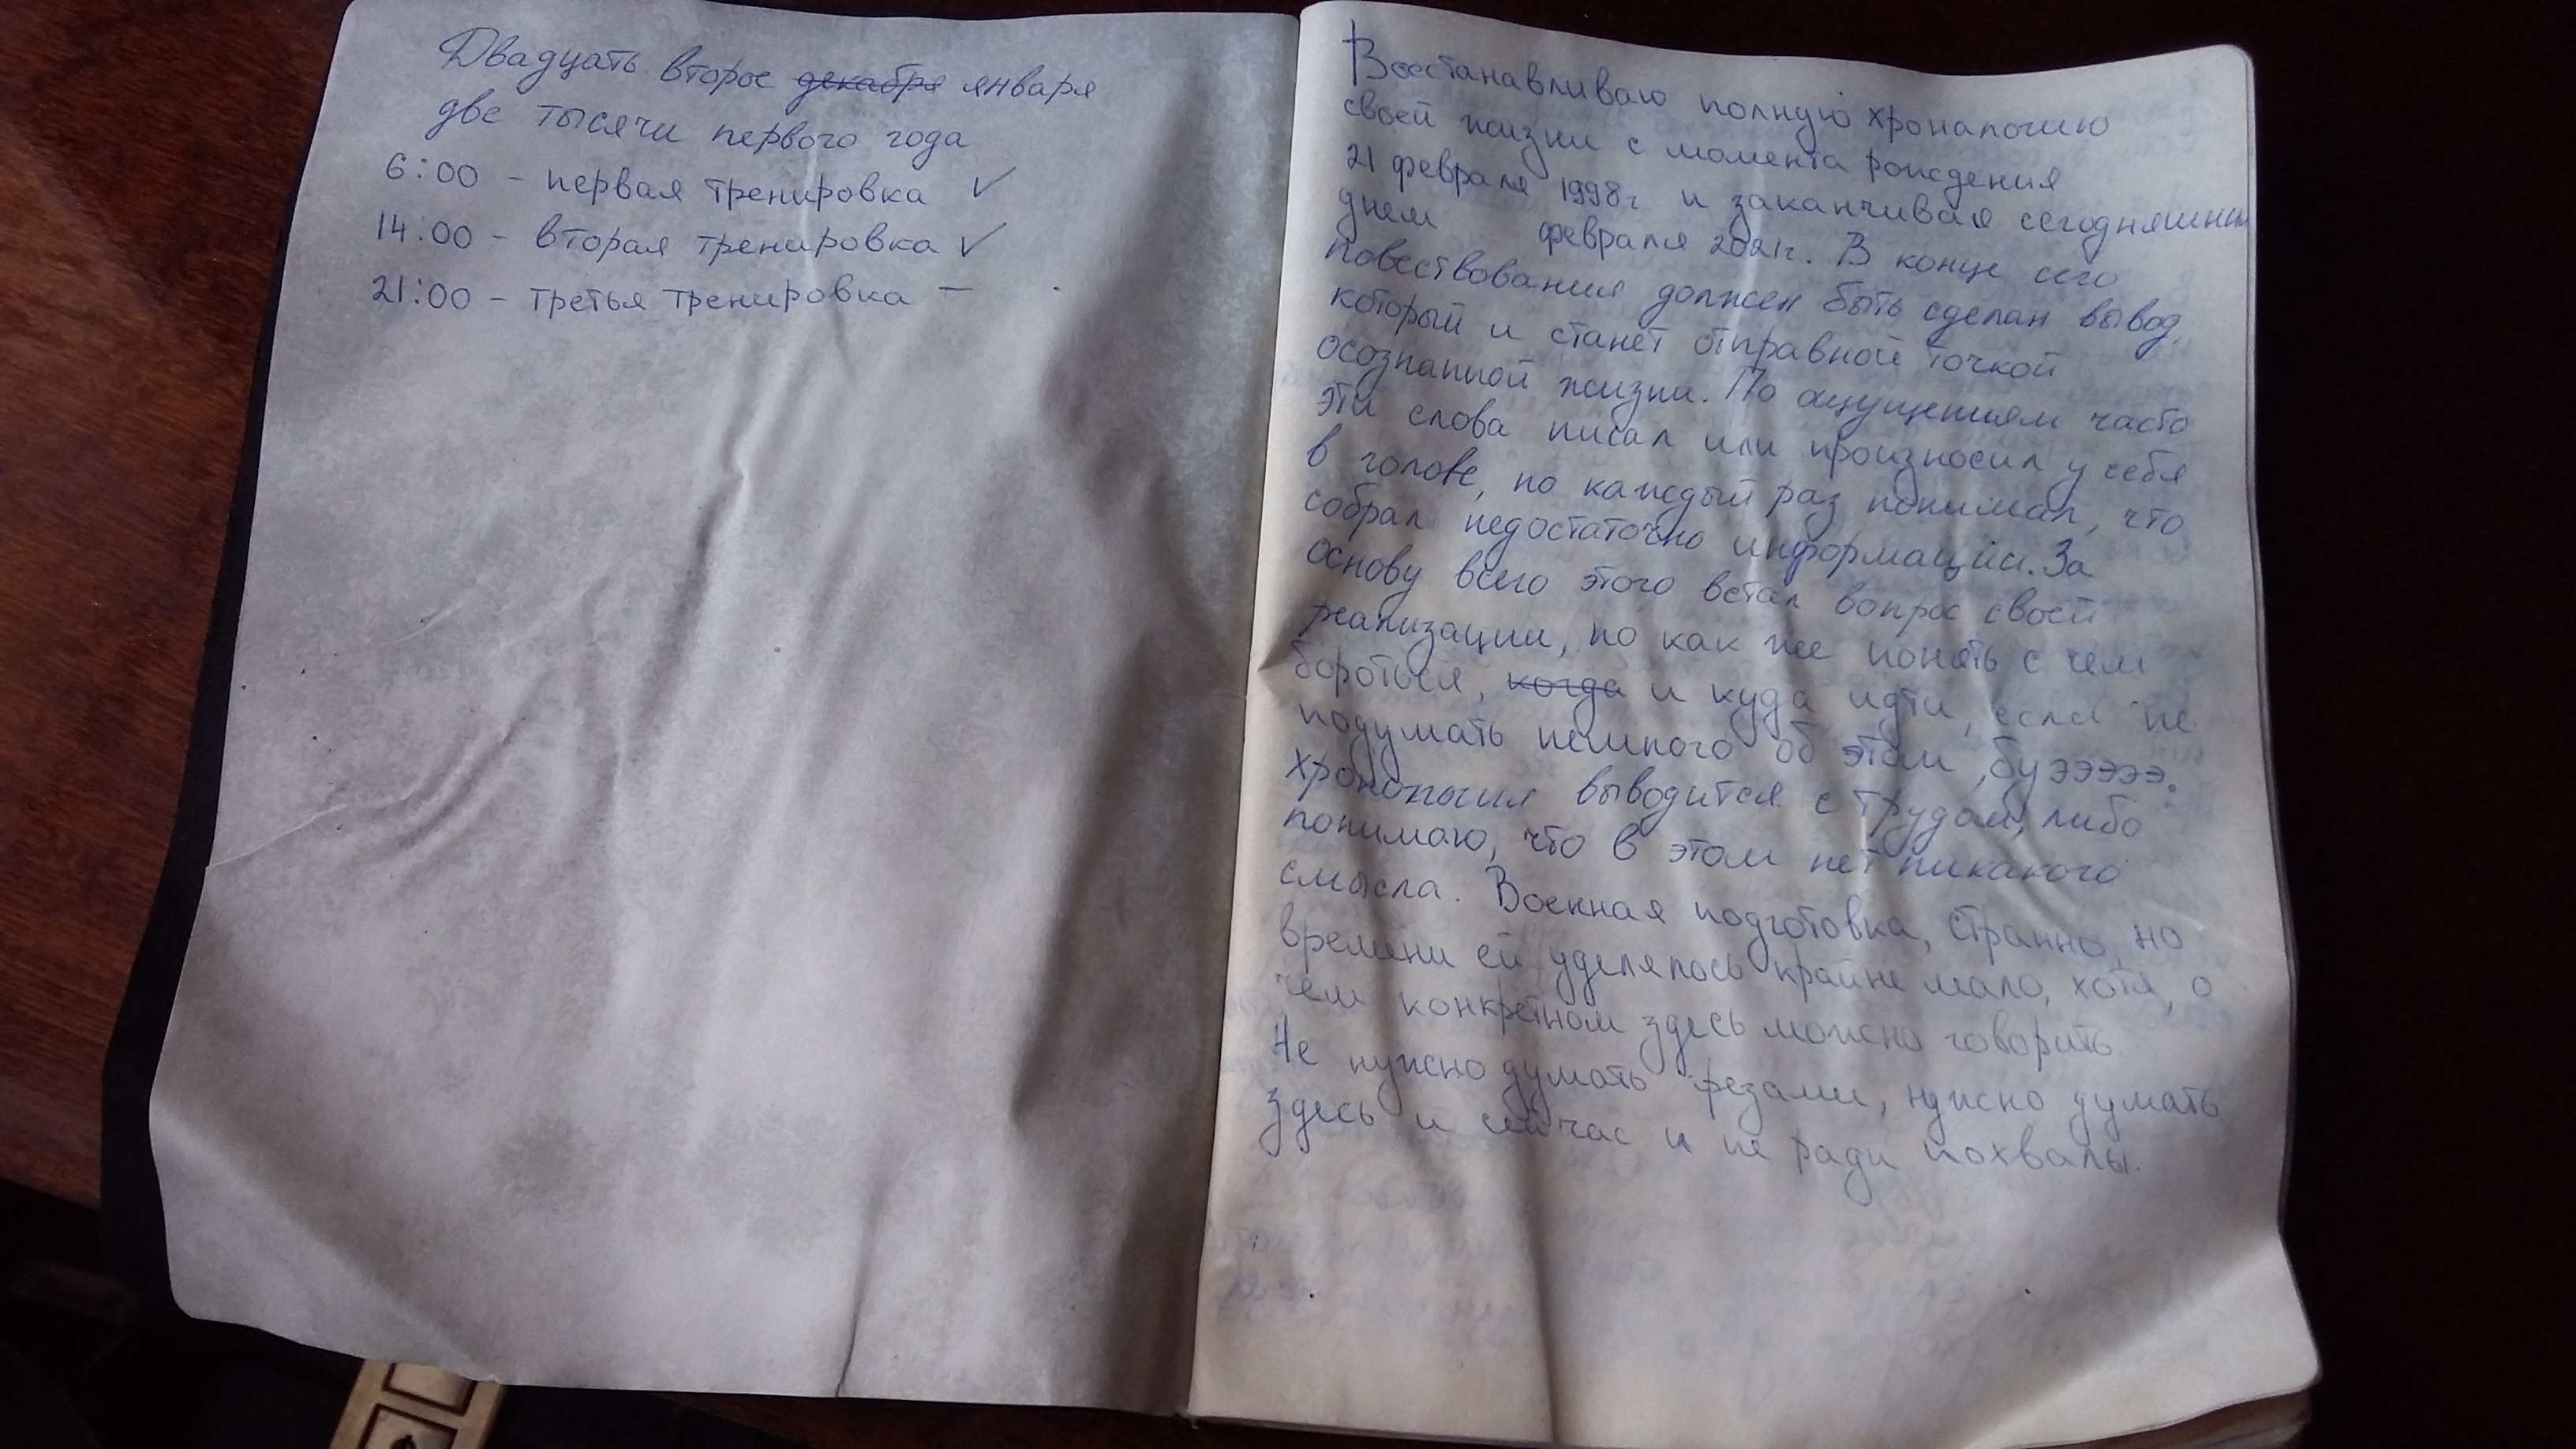 Двадцать второе декабря января
две тысячи первого года
6:00 - первая тренировка ✓
14:00 - вторая тренировка ✓
21:00 - третья тренировка —
Восстанавливаю полную хронологию
своей жизни с момента рождения
21 февраля 1998г и заканчивая сегодняшним
днем февраля 2021г. В конце сего
повествования должен быть сделан вывод,
который и станет отправной точкой
осознанной жизни. По ощущениям часто
эти слова писал или произносил у себя
в голове, но каждый раз понимал, что
собрал недостаточно информации. За
основу всего этого встал вопрос своей
реализации, но как же понять с чем
бороться, когда и куда идти, если не
подумать немного об этом, буэээээ.
Хронология выводится с трудом, либо
понимаю, что в этом нет никакого
смысла. Военная подготовка, странно, но
времени ей уделялось крайне мало, хотя, о
чем конкретном здесь можно говорить.
Не нужно думать фезами, нужно думать
здесь и сейчас и не ради похвалы.